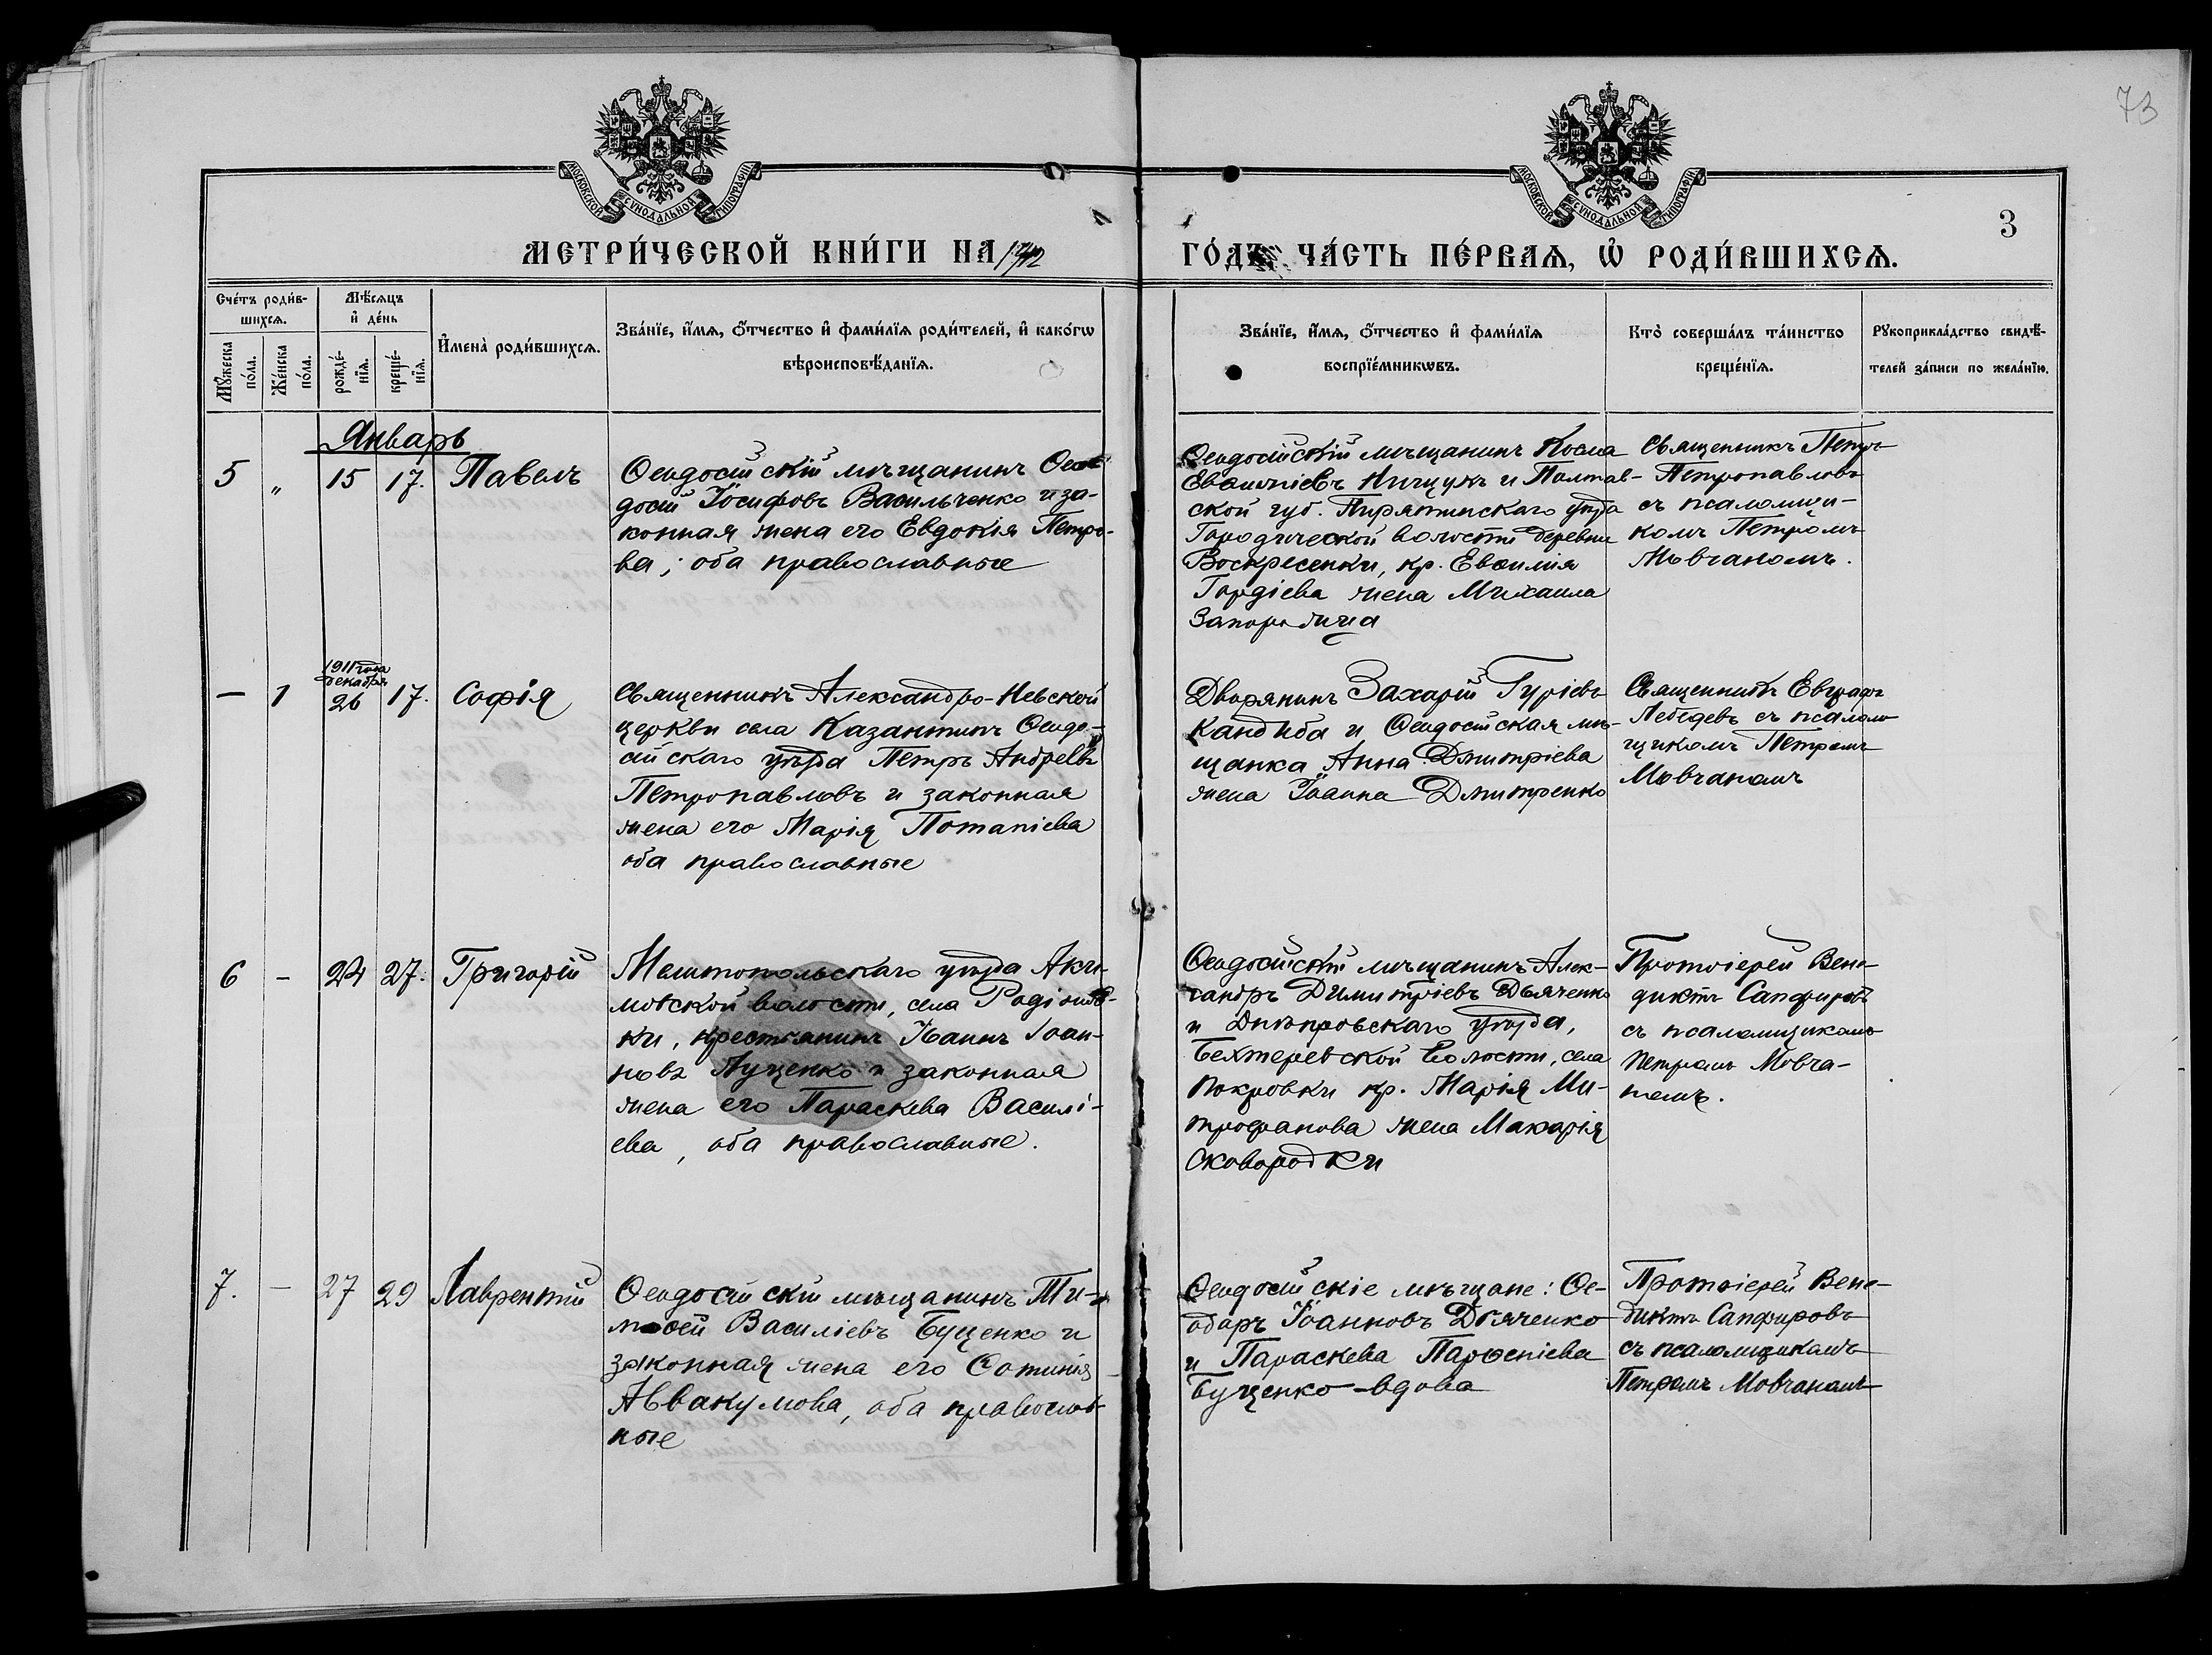 73
3
МОСКОВСКОЙ СУНОДАЛЬНОЙ ТИПОГРАФІИ
МОСКОВСКОЙ СУНОДАЛЬНОЙ ТИПОГРАФІИ
МЕТРИ́ЧЕСКОЙ КНИ́ГИ НА 1912
ГО́ДЪ, ЧА́СТЬ ПЕ́РВАѦ, Ѡ҆ РОДИ́ВШИХСѦ.
Сче́тъ роди́в-
шихсѧ.
Мѣ́сѧцъ
и҆ де́нь
Мꙋ́жеска
по́ла.
Же́нска
по́ла.
рожде́-
нїѧ.
креще́-
нїѧ.
И҆мена̀ роди́вшихсѧ.
Зва́нїе, и҆́мѧ, ѻ҆́тчество и҆ фами́лїѧ роди́телей, и҆ како́гѡ
вѣроисповѣ́данїѧ.
Зва́нїе, и҆́мѧ, ѻ҆́тчество и҆ фами́лїѧ
воспрїе́мникѡвъ.
Кто̀ соверша́лъ та́инство
креще́нїѧ.
Рꙋкоприкла́дство свидѣ́-
телей за́писи по жела́нїю.
Январь
5 „ 15 17. Павелъ
Ѳеодосійскій мѣщанинъ Ѳео-
досій Іосифовъ Васильченко и за-
конная жена его Евдокія Петро-
ва; оба православные
Ѳеодосійскій мѣщанинъ Косма
и Полтав-
ской губ. Пирятинскаго уѣзда
волости деревни
Воскресенки, кр. Евѳимія
Гордіева жена Михаила
Священникъ Петръ
Петропавловъ
съ псаломщи-
комъ Петромъ
Мовчаномъ.
— 1 1911 года
декабря
26 17. Софія
Священникъ Александро-Невской
церкви села Казантипъ Ѳеодо-
сійскаго уѣзда Петръ Андреевъ
Петропавловъ и законная
жена его Марія Потапіева
оба православные
Дворянинъ Захарій Гуріевъ
Кандыба и Ѳеодосійская мѣ-
щанка Анна Дмитріева
жена Іоанна Дмитренко
Священникъ Евграфъ
Лебедевъ съ псалом-
щикомъ Петромъ
Мовчаномъ
6 - 24 27. Григорій
Мелитопольскаго уѣзда Аки-
мовской волости, села Родіонов-
ки, крестьянинъ Іоаннъ Іоан-
новъ Луценко и законная
жена его Параскева Василі-
ева, оба православные.
Ѳеодосійскій мѣщанинъ Алек-
сандръ Димитріевъ Дьяченко
и Днѣпровскаго уѣзда,
Бехтеревской волости, села
Покровки кр. Марія Ми-
трофанова жена Макарія
Сковородки
Протоіерей Вене-
диктъ Сапфировъ
съ псаломщикомъ
Петромъ Мовча-
номъ.
7. - 27 29 Лаврентій
Ѳеодосійскій мѣщанинъ Ти-
моѳей Василіевъ Буценко и
законная жена его Фотинія
Аввакумова, оба православ-
ные
Ѳеодосійскіе мѣщане: Ѳе-
одоръ Іоанновъ Дьяченко
и Параскева Парѳеніева
Буценко-вдова
Протоіерей Вене-
диктъ Сапфировъ
съ псаломщикомъ
Петромъ Мовчаномъ